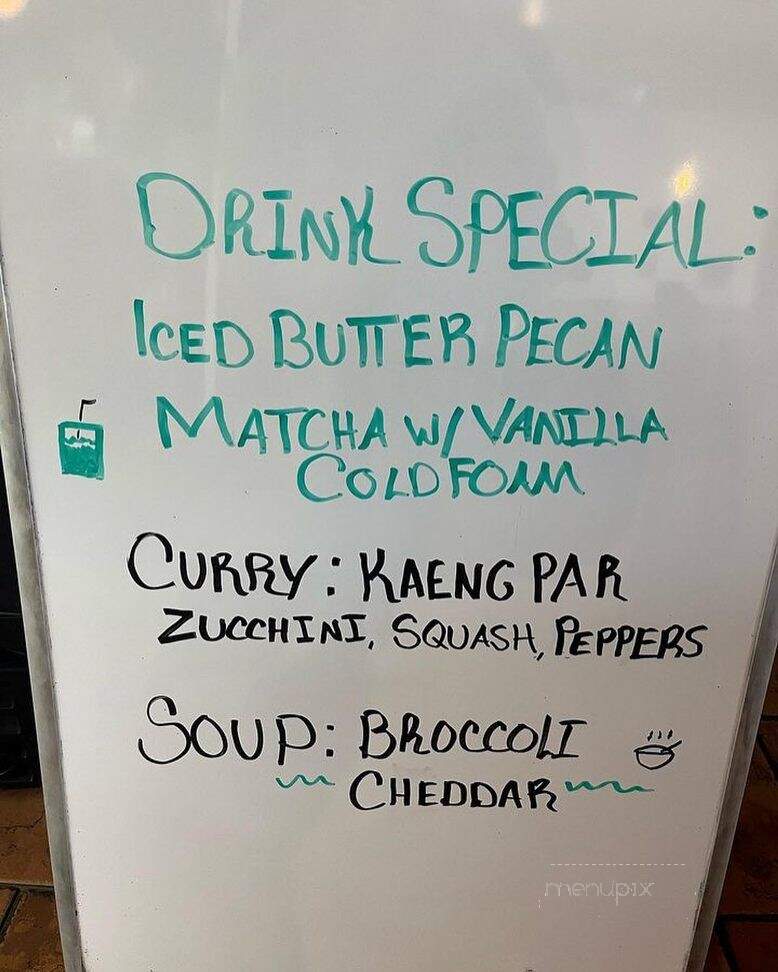 DRINK SPECIAL:
ICED BUTTER PECAN
MATCHA W/ VANILLA
COLD FOAM
CURRY: KAENG PAR
ZUCCHINI, SQUASH, PEPPERS
SOUP: BROCCOLI
CHEDDAR
menupix